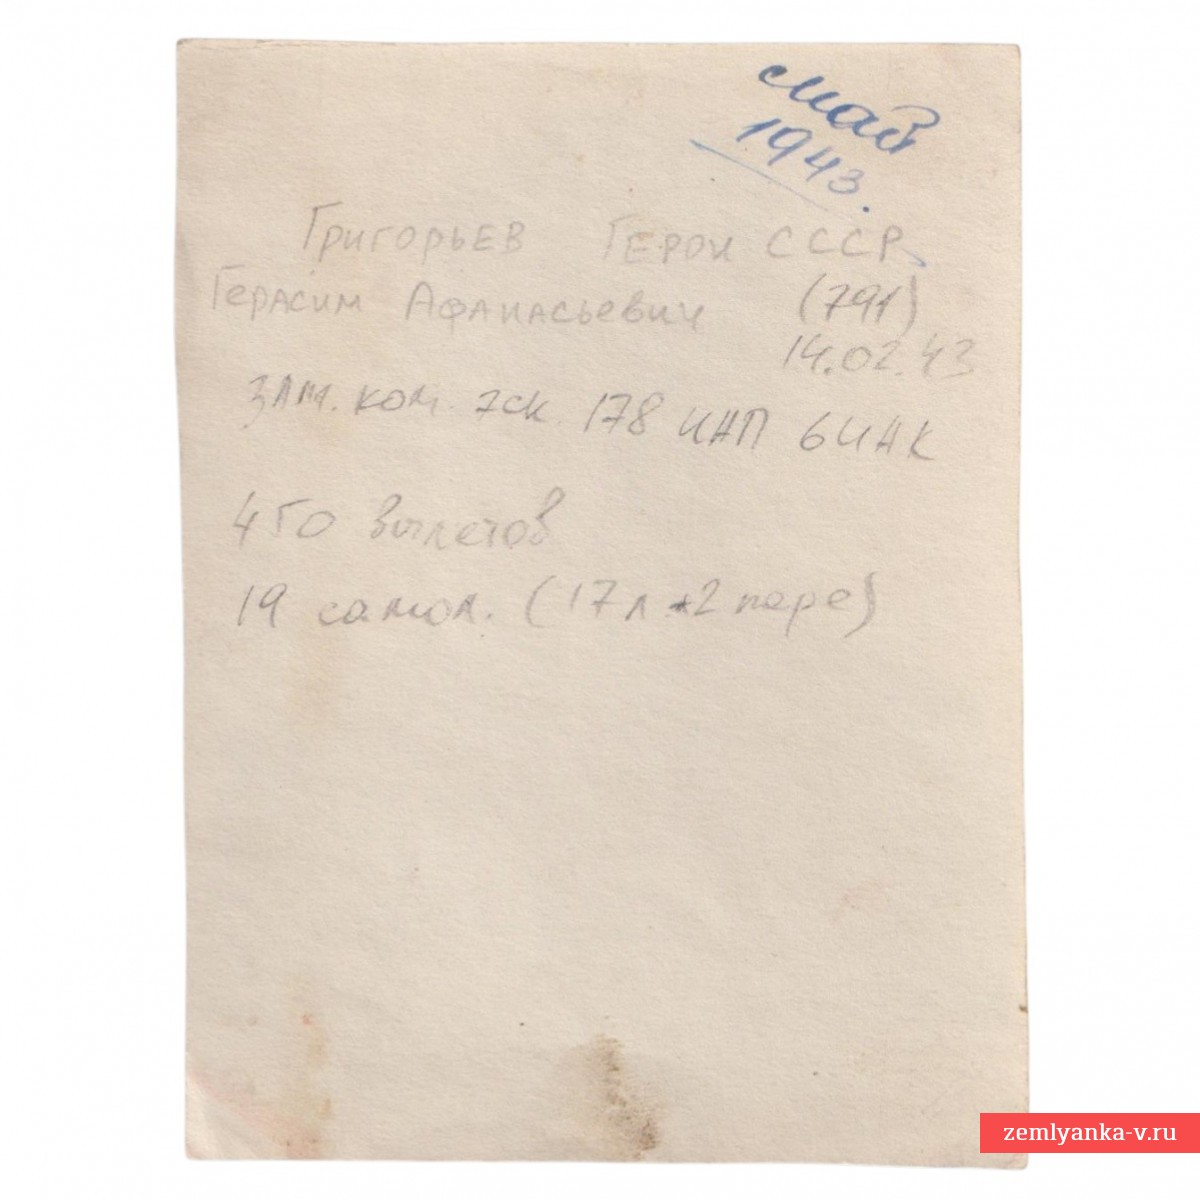 май
1943.
Григорьев Герои СССР
Герасим Афанасьевич (791)
14.02.43
зам. ком. эск. 178 ИАП 6 ИАК
450 вылетов
19 самол. (17 л. + 2 паре)
zemlyanka-v.ru